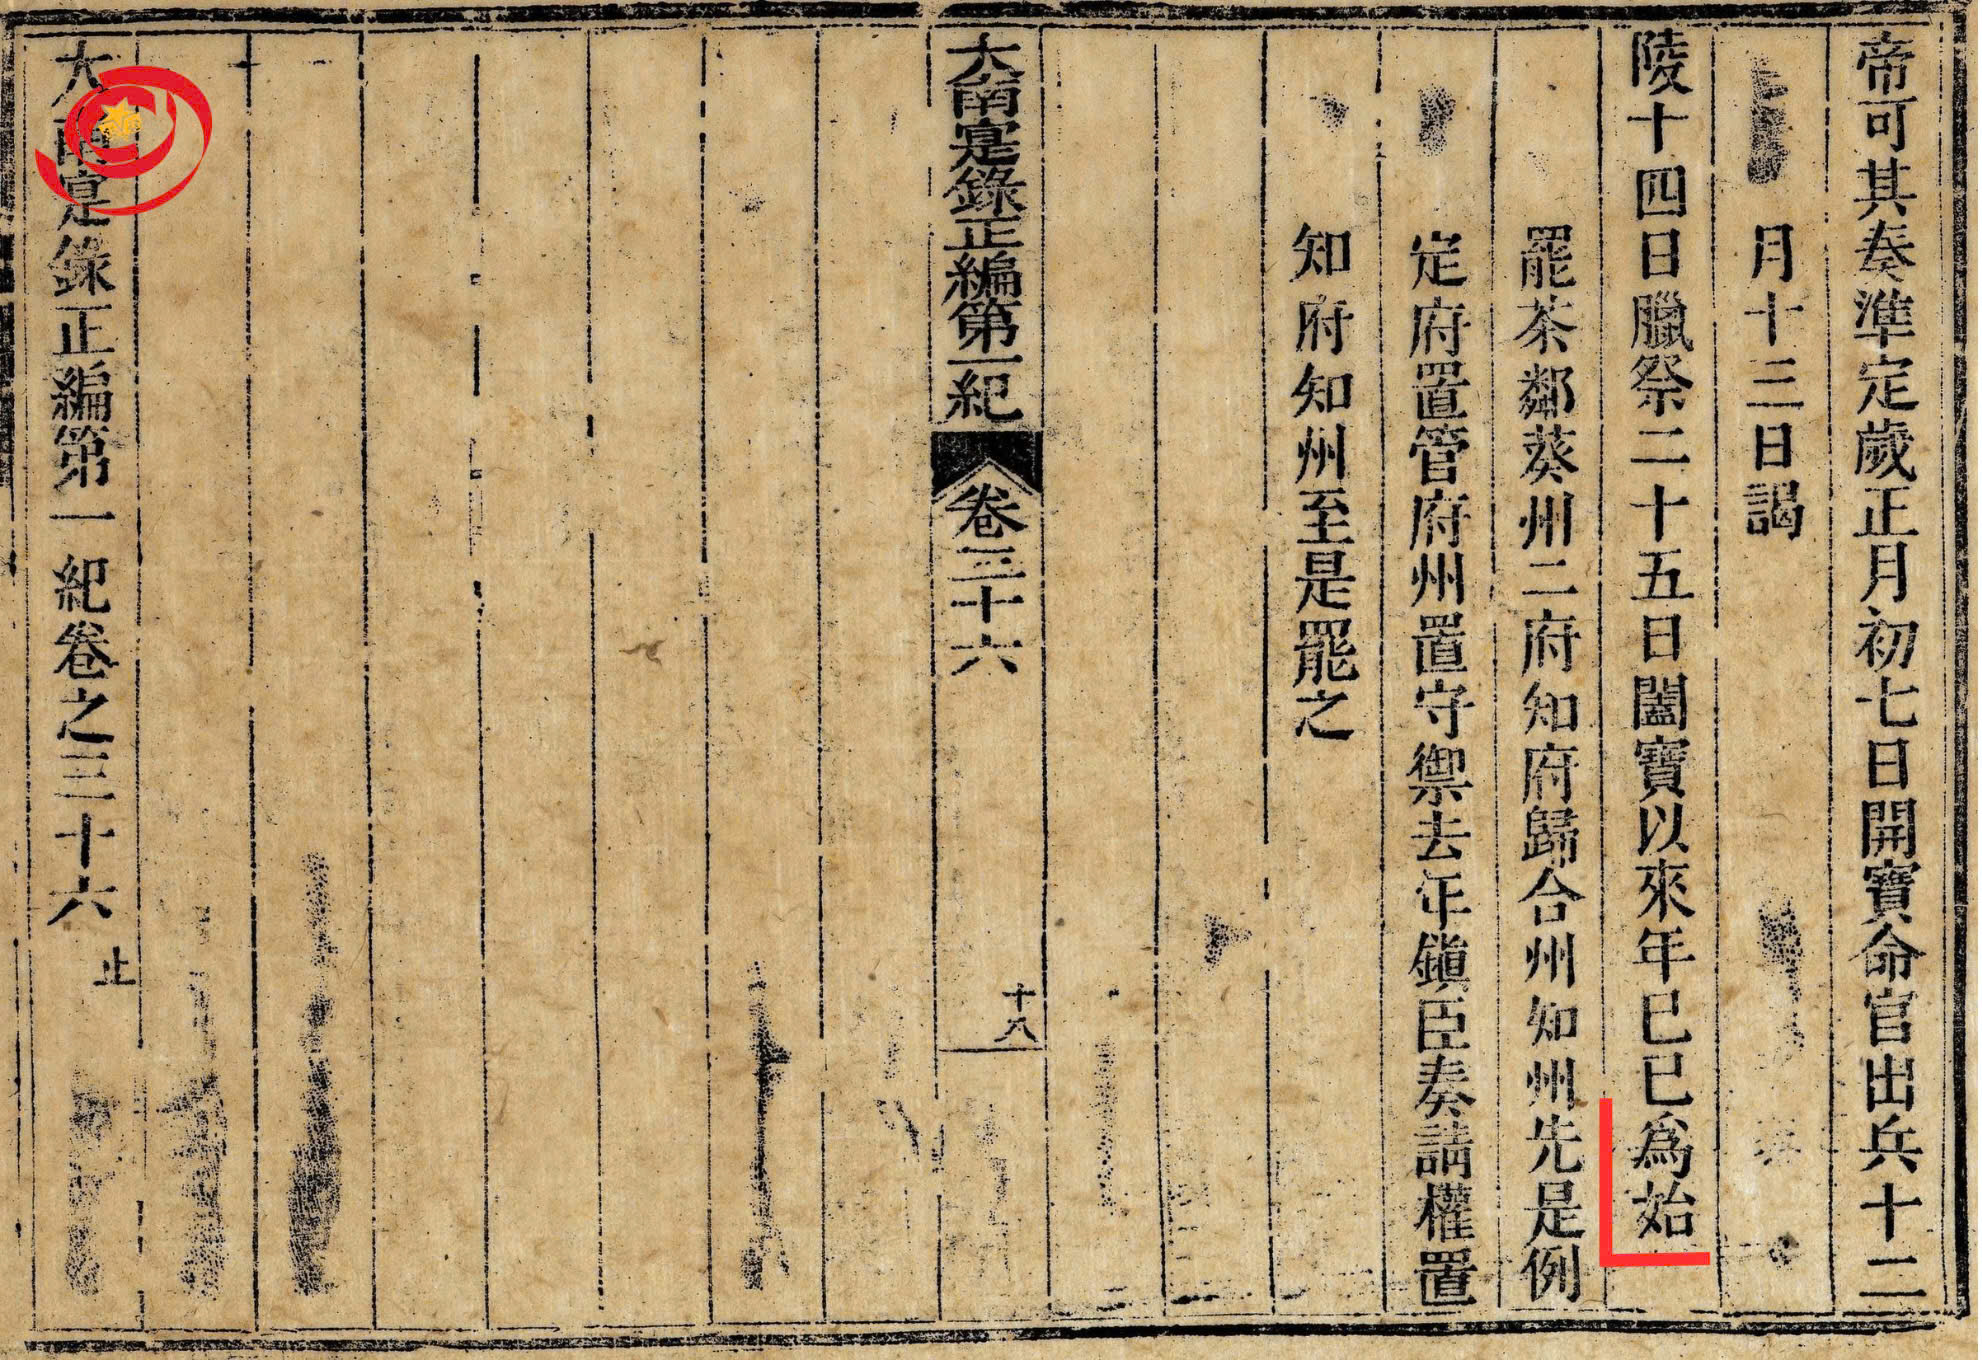 帝可其奏準定歲正月初七日開寶命官出兵十二
月十三日謁
陵十四日臘祭二十五日闔寶以來年巳巳為始
罷茶鄰葵州二府知府歸合州知州先是例
定府置管府州置守禦去年鎮臣奏請權置
知府知州至是罷之
大南寔錄正編第一紀
卷三十六
十八
大南寔錄正編第一紀卷之三十六
止